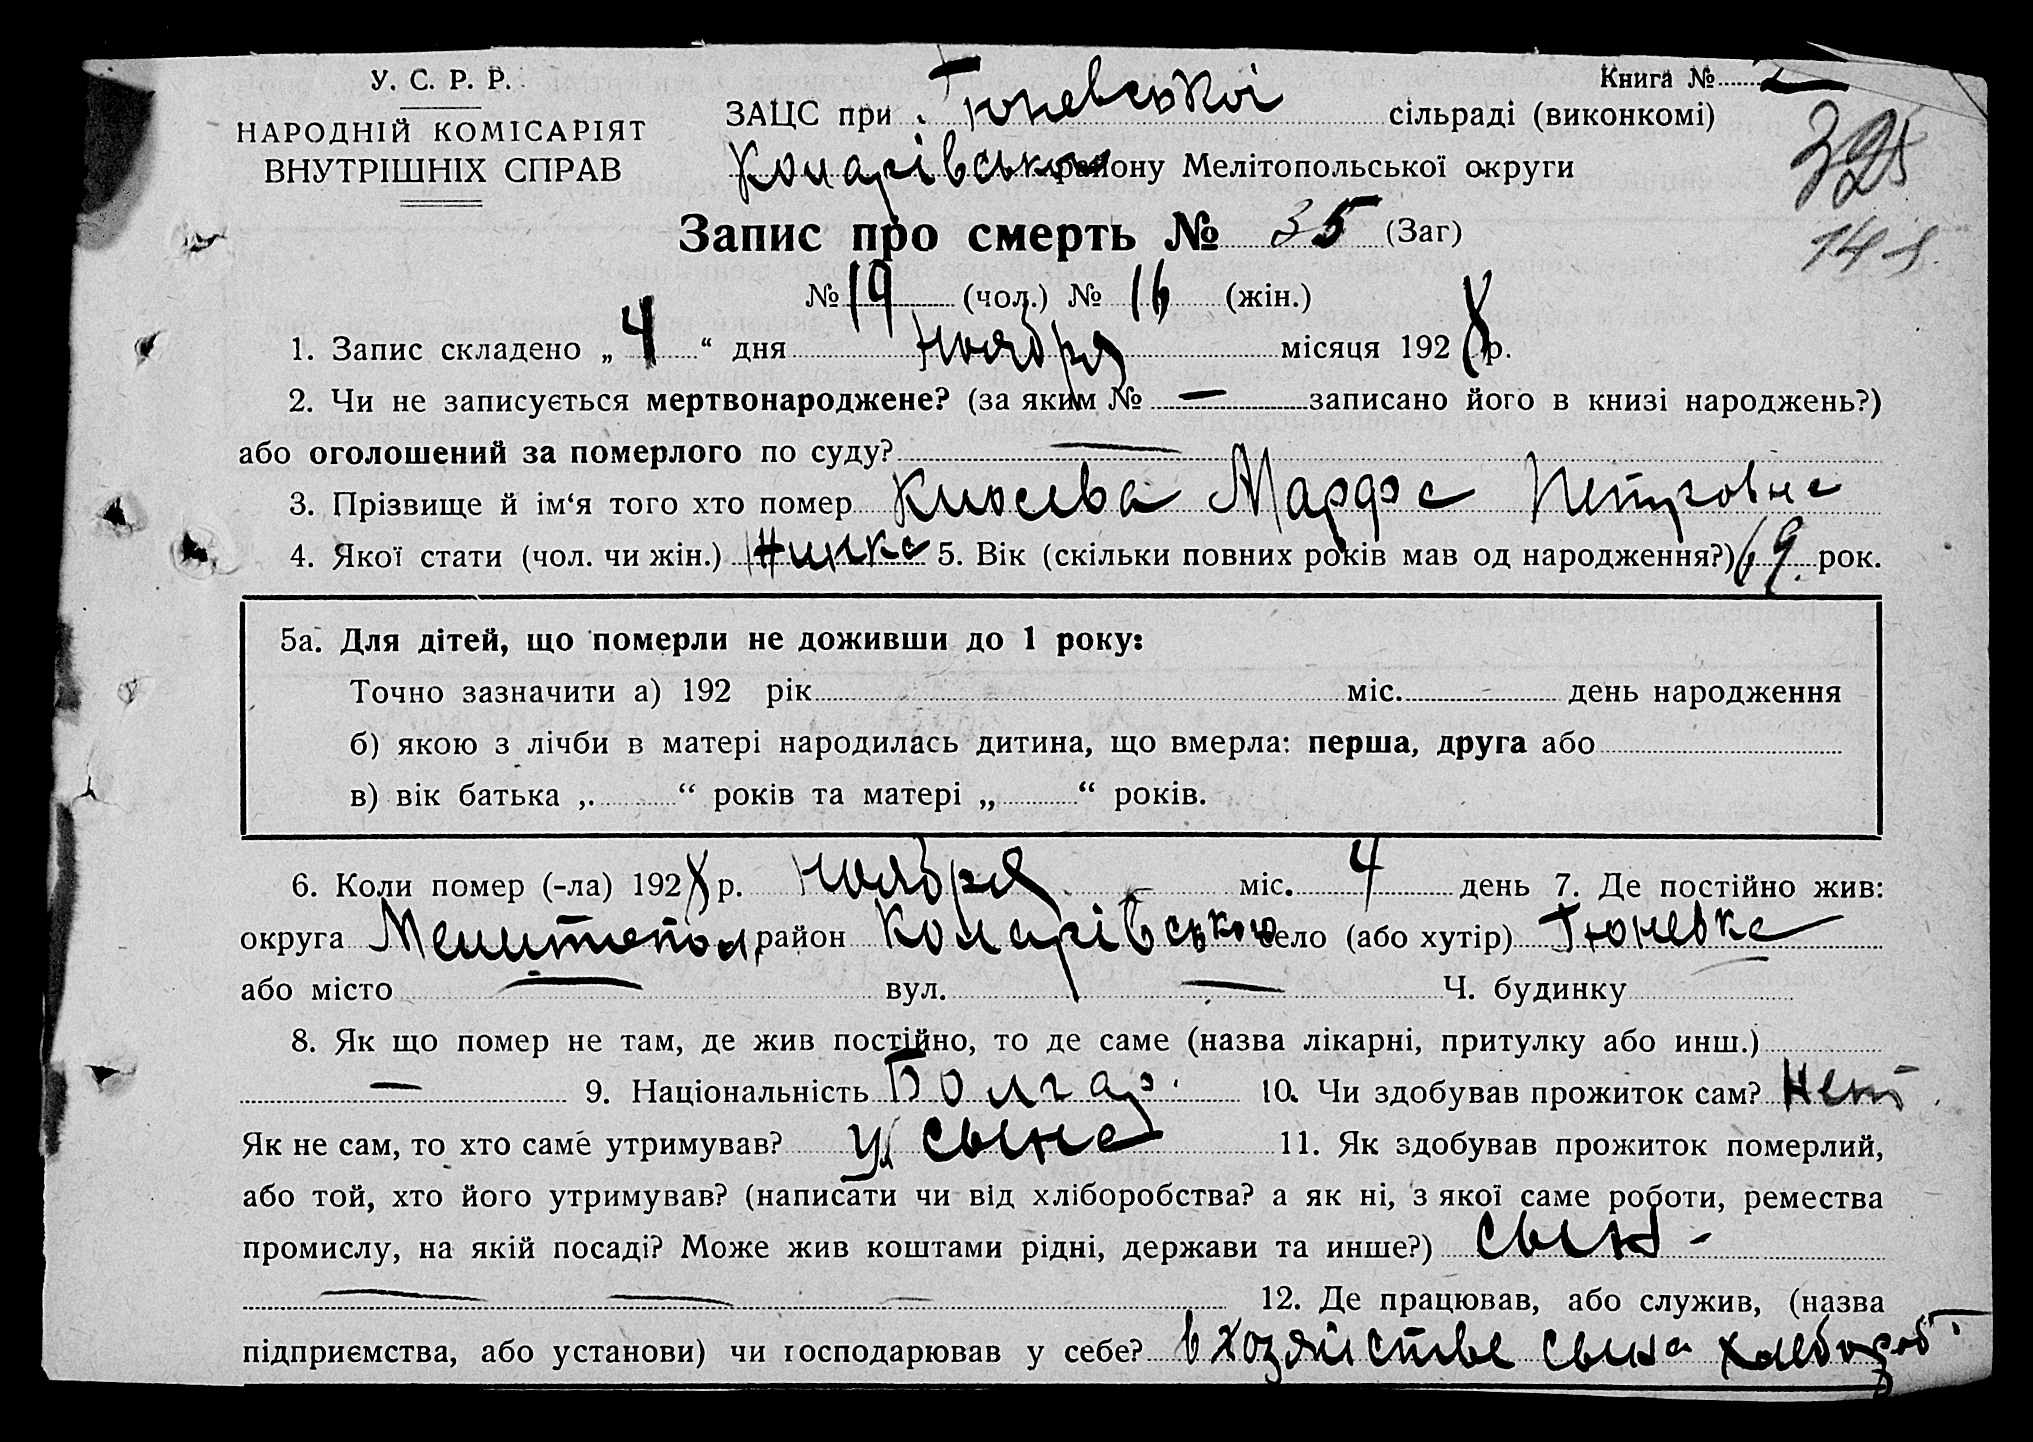 У. С. Р. Р.
НАРОДНІЙ КОМІСАРІЯТ
ВНУТРІШНІХ СПРАВ
Книга №
ЗАЦС при Тюневської сільраді (виконкомі)
Коларівського району Мелітопольської округи
325
Запис про смерть № 35 (Заг)
№ 19 (чол.) № 16 (жін.)
1. Запис складено „ 4 “ дня ноября місяця 192 8 р.
2. Чи не записується мертвонароджене? (за яким № — записано його в книзі народжень?)
або оголошений за померлого по суду? —
3. Прізвище й ім‘я того хто помер Марфа Петровна
4. Якої стати (чол. чи жін.) 5. Вік (скільки повних років мав од народження?) 69 рок.
5а. Для дітей, що померли не доживши до 1 року:
Точно зазначити а) 192 рік міс. день народження
б) якою з лічби в матері народилась дитина, що вмерла: перша, друга або
в) вік батька „ “ років та матері „ “ років.
6. Коли помер (-ла) 192 8 р. ноября міс. 4 день 7. Де постійно жив:
округа Мелитопол район Коларівською село (або хутір) Тюневка
або місто — вул. — Ч. будинку
8. Як що помер не там, де жив постійно, то де саме (назва лікарні, притулку або инш.)
— 9. Національність Болгар. 10. Чи здобував прожиток сам? Нет
Як не сам, то хто саме утримував? у сына 11. Як здобував прожиток померлий,
або той, хто його утримував? (написати чи від хліборобства? а як ні, з якої саме роботи, ремества
промислу, на якій посаді? Може жив коштами рідні, держави та инше?) сын -
— — — 12. Де працював, або служив, (назва
підприємства, або установи) чи господарював у себе? в хозяйстве сына хлебороб